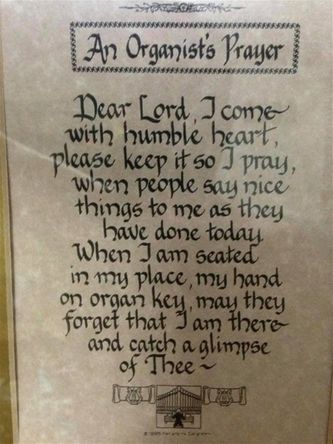 An Organist's Prayer
Dear Lord, I come
with humble heart,
please keep it so I pray,
when people say nice
things to me as they
have done today.
When I am seated
in my place, my hand
on organ key, may they
forget that I am there
and catch a glimpse
of Thee ~